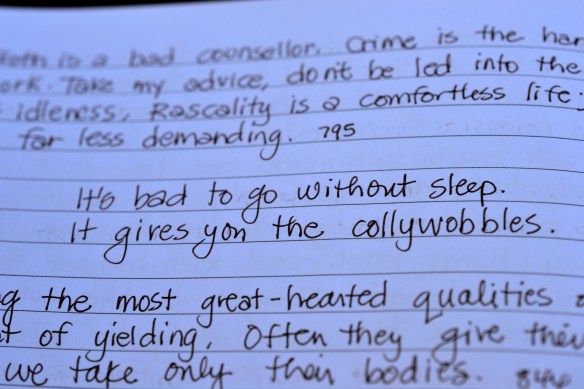 is a bad counsellor. Crime is the har
ork. Take my advice, don't be led into the
idleness. Rascality is a comfortless life.
far less demanding. 795
It's bad to go without sleep.
It gives you the collywobbles.
g the most great-hearted qualities
t of yielding. Often they give their
we take only their bodies.